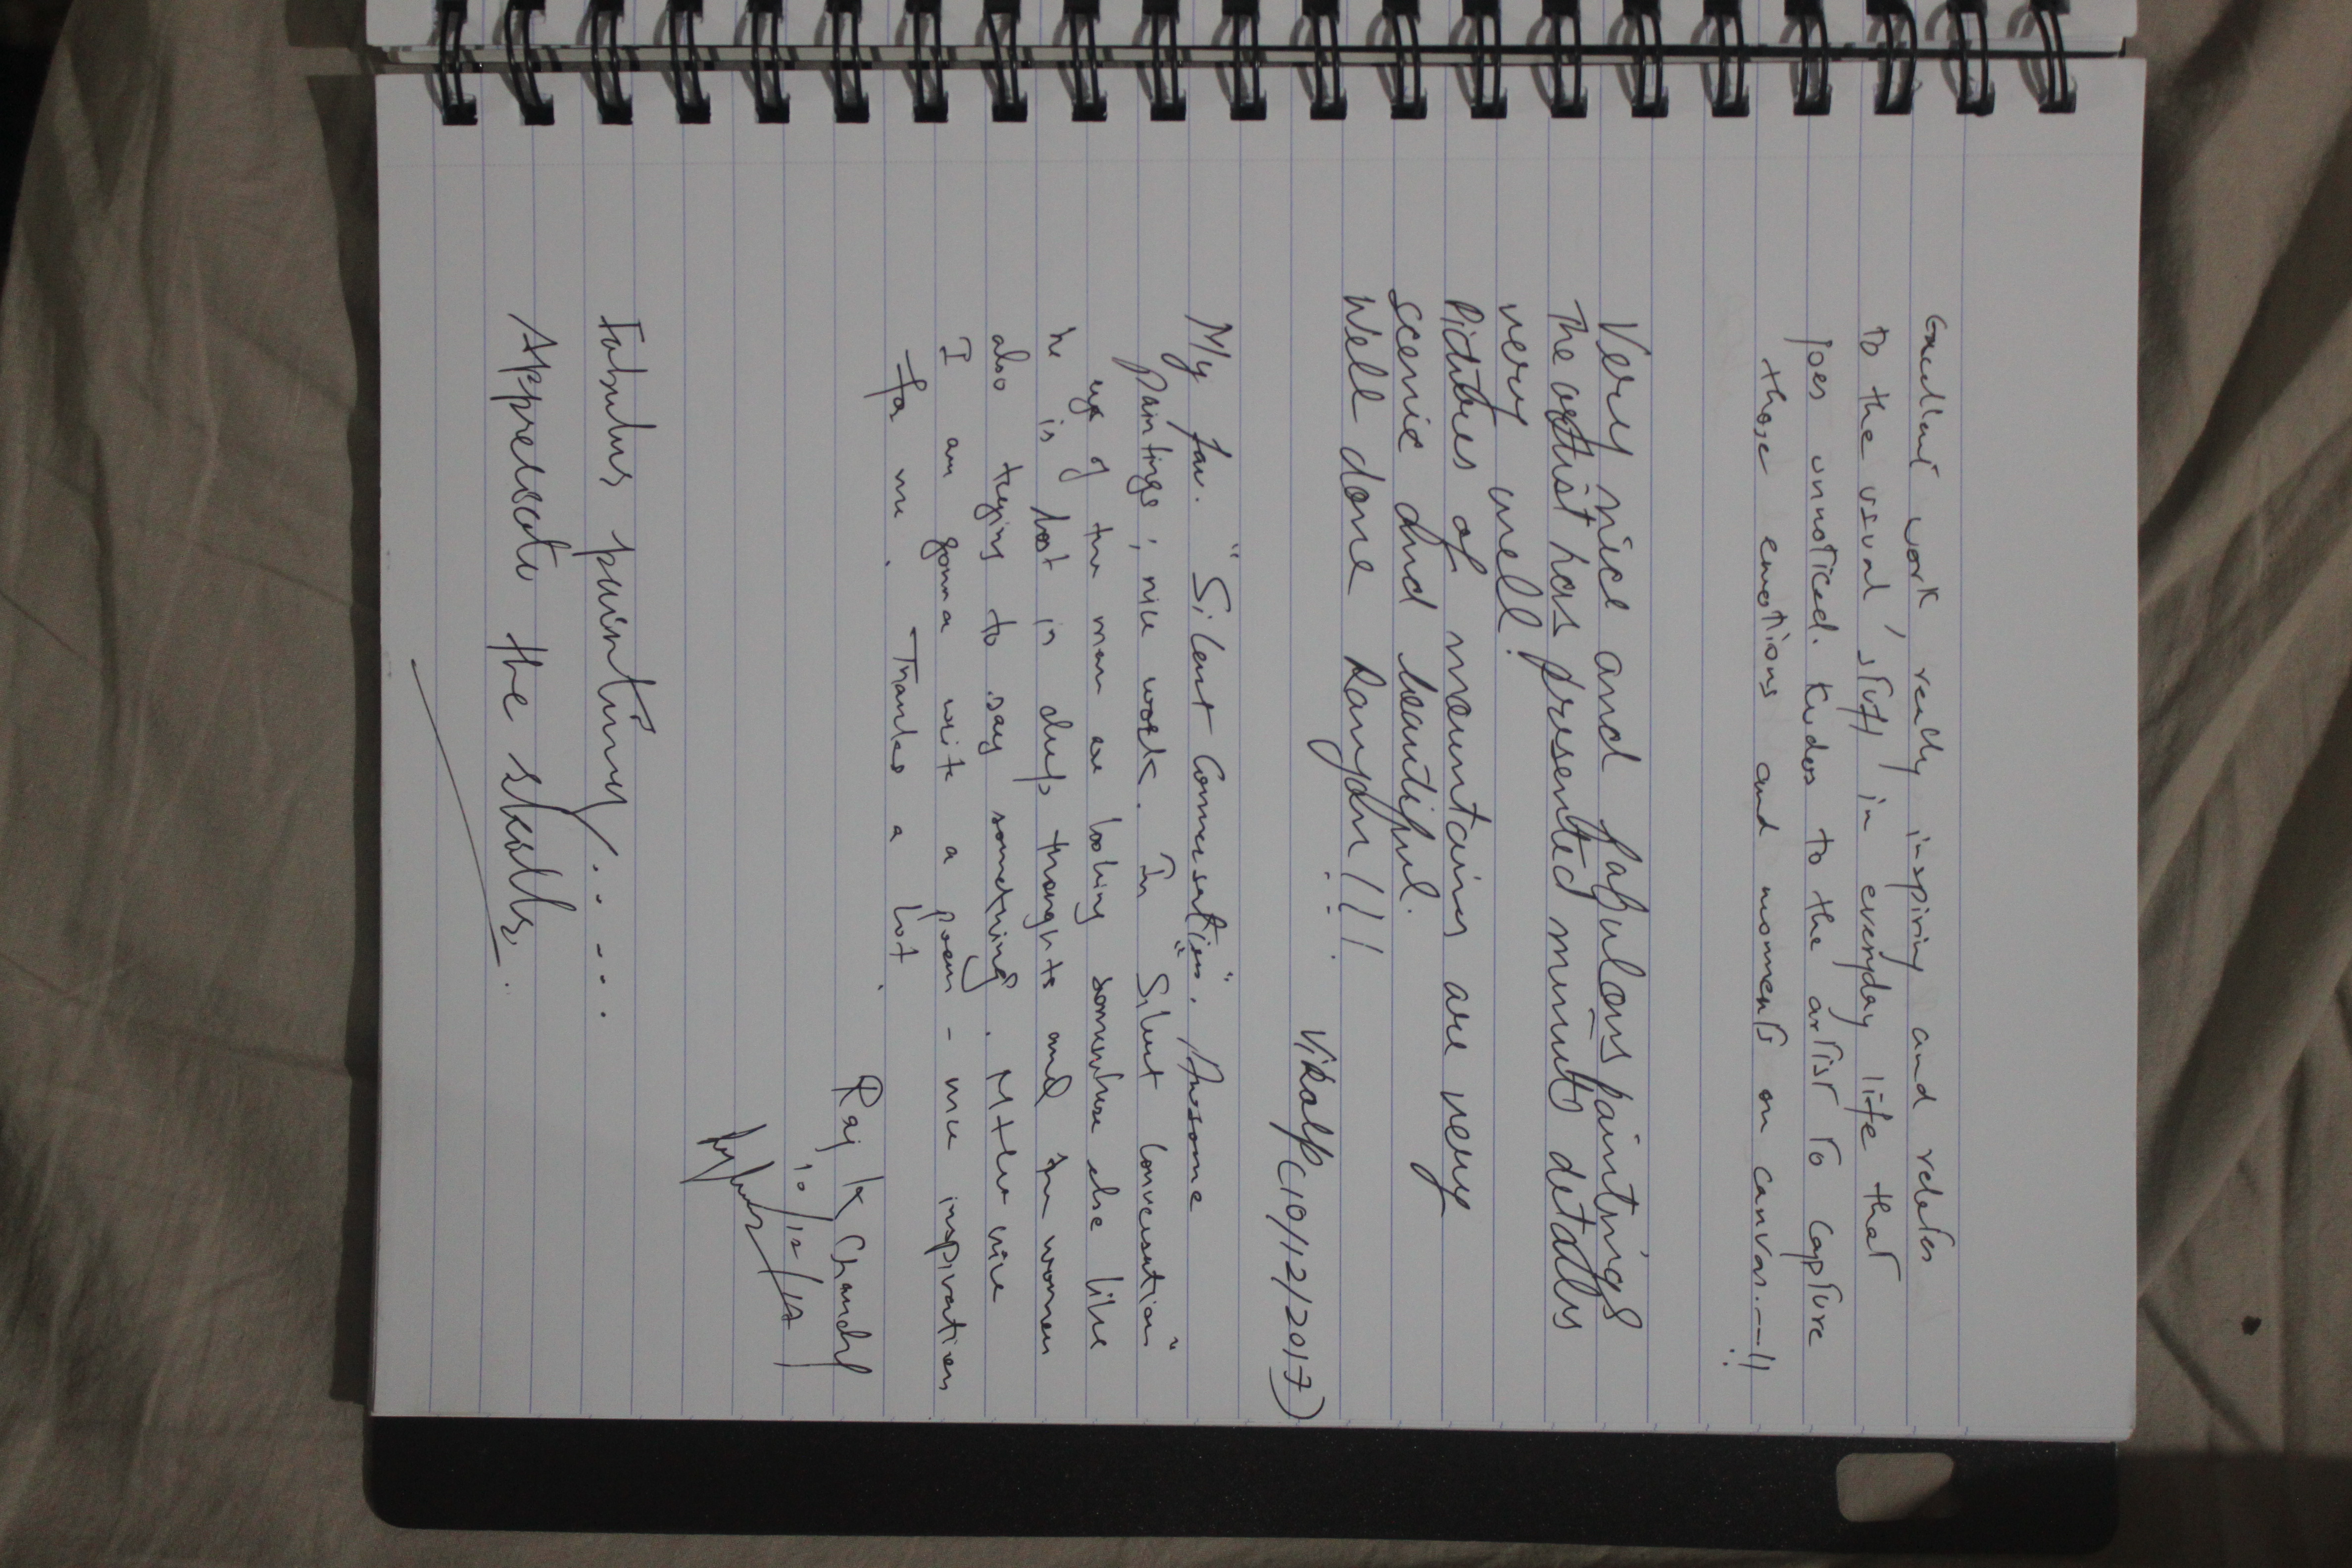 Excellent work really inspiring and relates
to the usual 'stuff' in everyday life that
goes unnoticed. Kudos to the artist to capture
those emotions and moments on canvas.--!!
Very nice and fabulous paintings
The artist has presented minute details
very well!
Pictures of mountains are very
scenic and beautiful.
Well done Ranjan!!!
Vikalp (10/12/2017)
My fav. "Silent Conversation". Awesome
Paintings; nice work. In "Silent Conversation"
eyes of the man are looking somewhere else like
he is lost in deep thoughts and the women
also trying to say something. nice
I am gonna write a poem - nice inspiration
for me. Thanks a lot.
Raj K Chandel
10/12/17
Fabulus painting.....
Appreciate the skills.